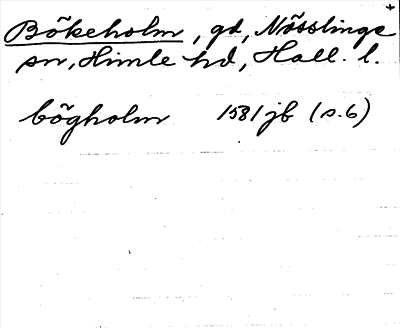 Bökeholm, gd, Nösslinge
sn, Himle hd, Hall. l.
bögholm 1581 jb (s. 6)